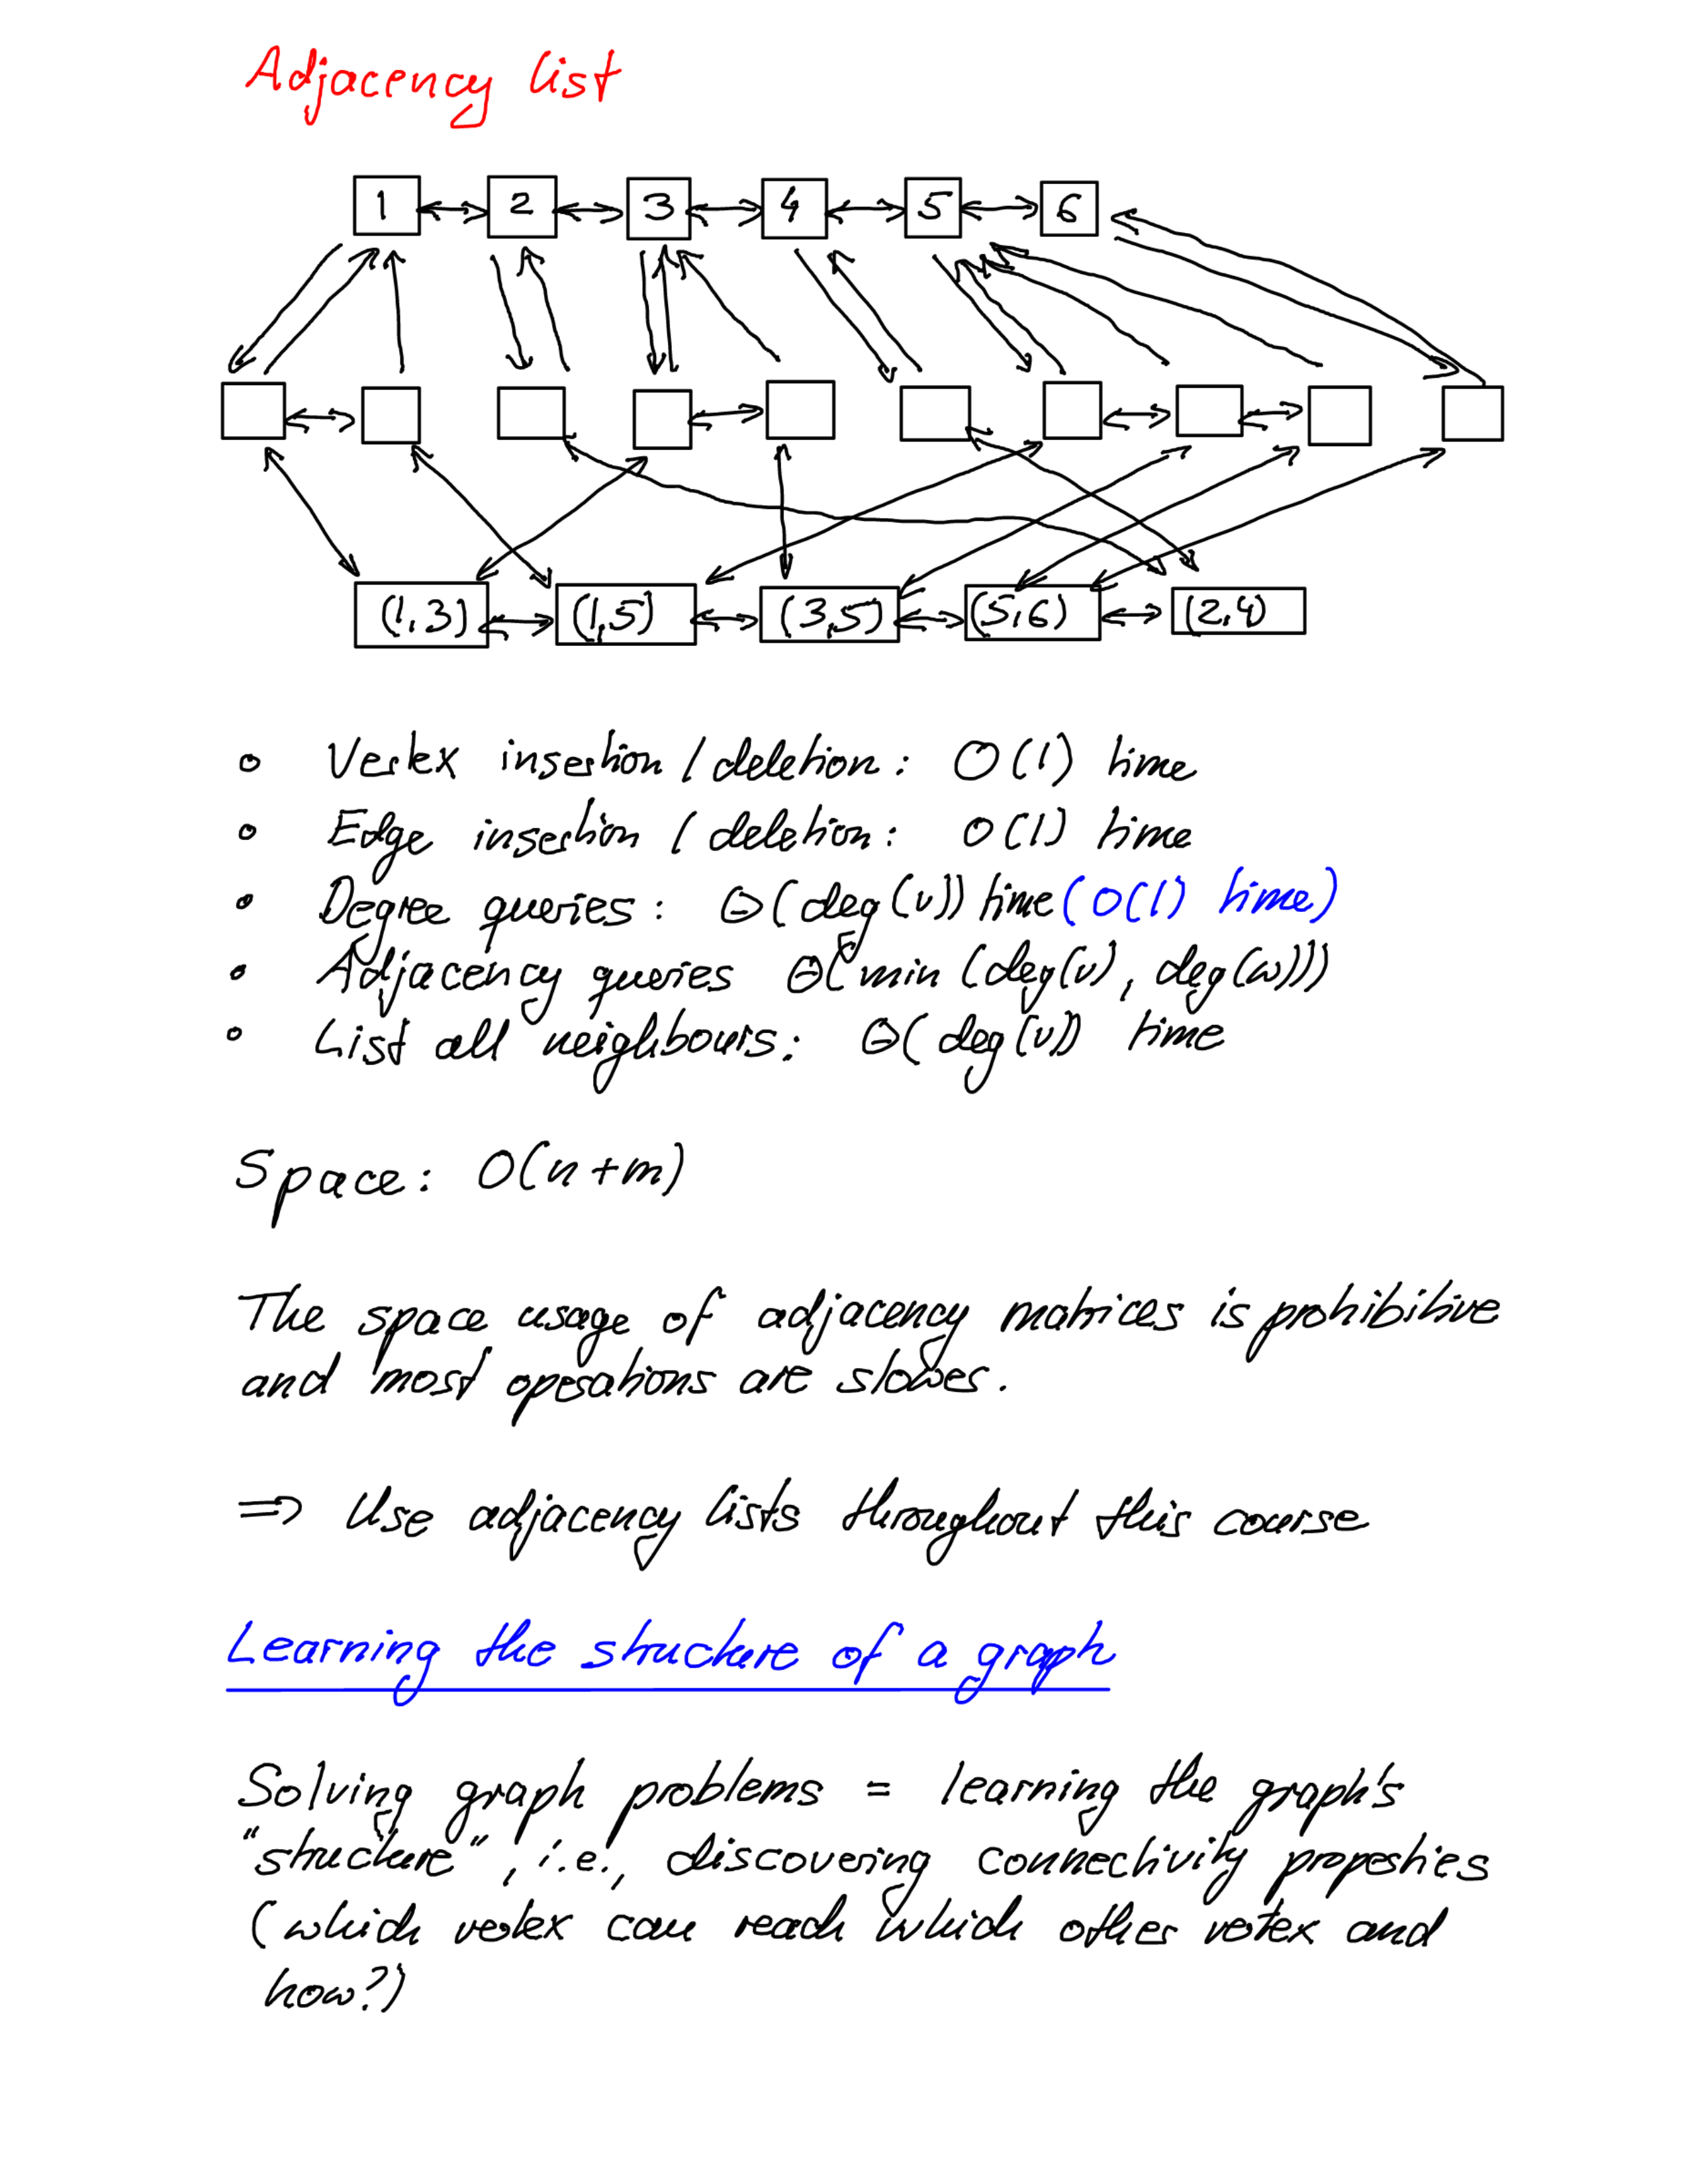 Adjacency list
1 2 3 4 5 6
(1,3) (1,5) (3,5) (5,6) (2,4)
◦ Vertex insertion / deletion: O(1) time
◦ Edge insertion / deletion: O(1) time
◦ Degree queries: Θ(deg(v)) time (O(1) time)
◦ Adjacency queries Θ(min(deg(v), deg(w)))
◦ List all neighbours: Θ(deg(v)) time
Space: O(n+m)
The space usage of adjacency matrices is prohibitive
and most operations are slower.
⇒ Use adjacency lists throughout this course
Learning the structure of a graph
Solving graph problems = learning the graph's
"structure", i.e., discovering connectivity properties
(which vertex can reach which other vertex and
how?)